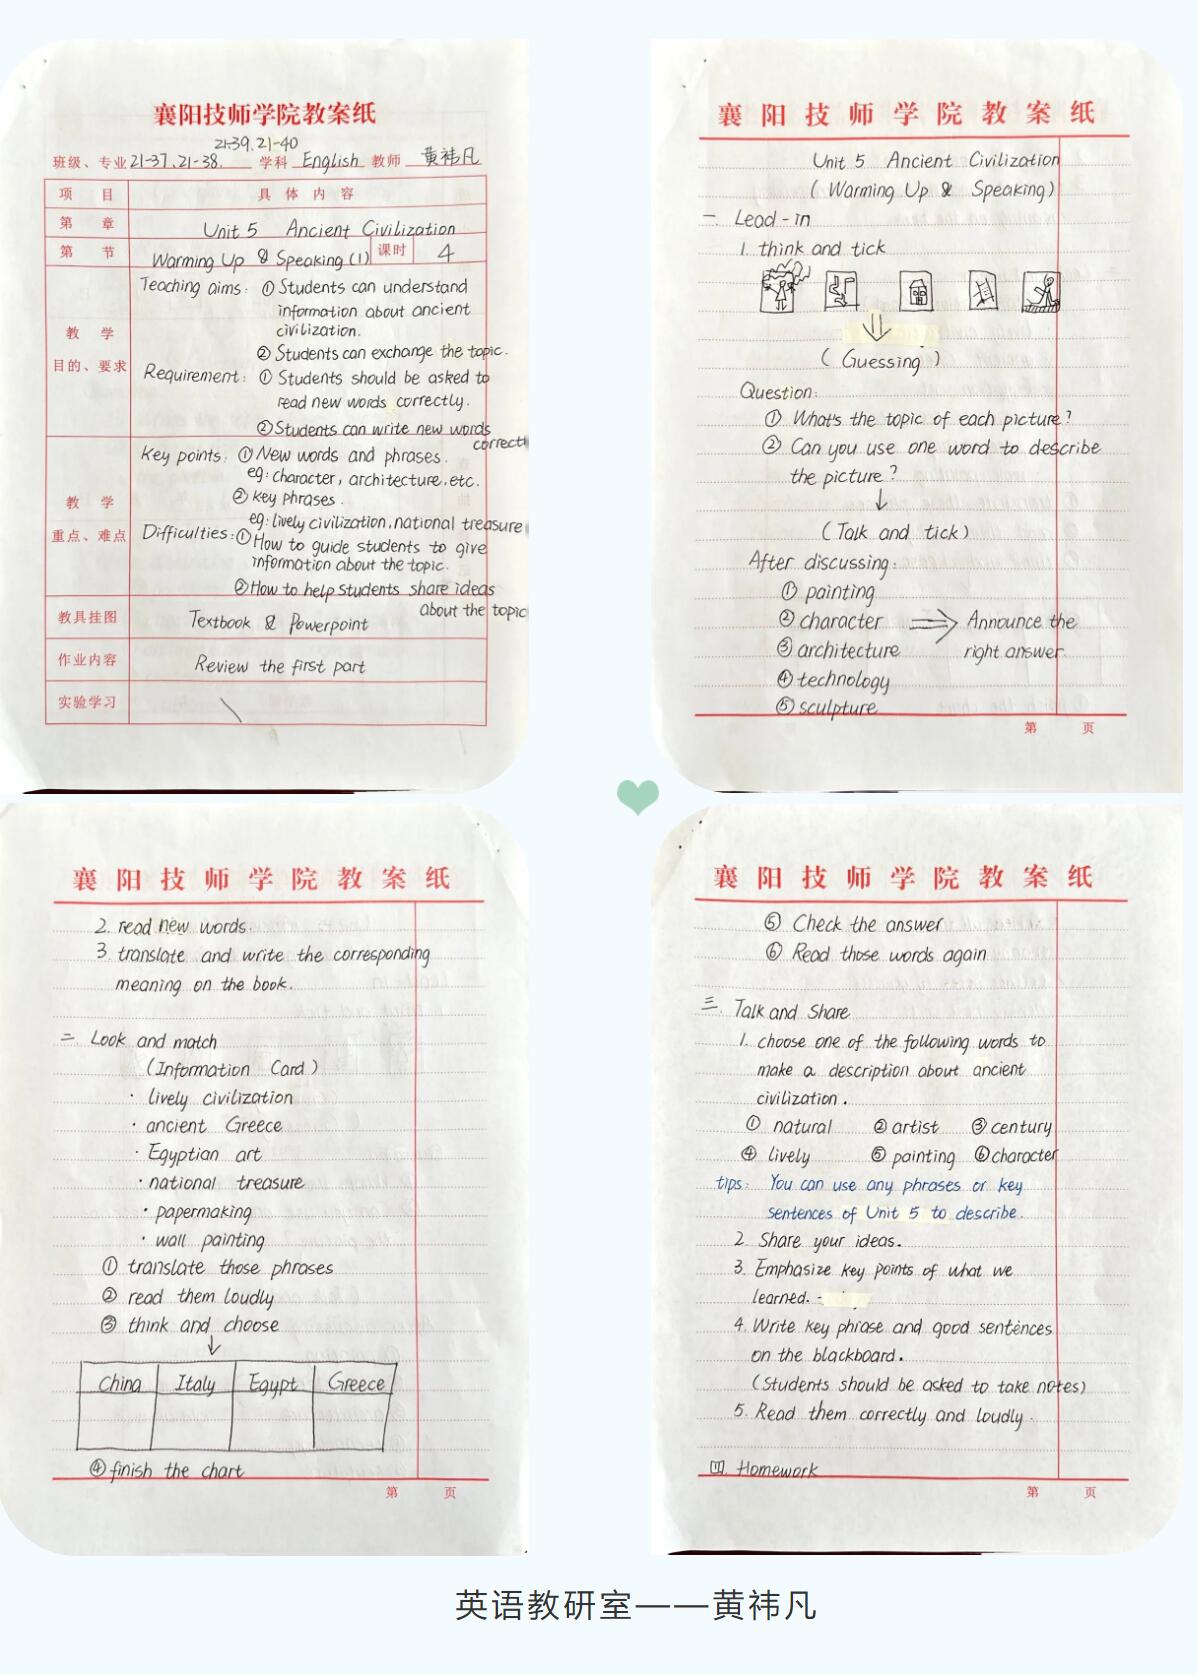 襄阳技师学院教案纸
21-39.21-40
班级、专业 21-37.21-38. 学科 English 教师 黄祎凡
项 目 具 体 内 容
第 章 Unit 5 Ancient Civilization
第 节 Warming Up & Speaking (1) 课时 4
教 学
目的、要求
Teaching aims: ① Students can understand
information about ancient
civilization.
② Students can exchange the topic.
Requirement: ① Students should be asked to
read new words correctly.
② Students can write new words
correctl
教 学
重点、难点
Key points: ① New words and phrases.
eg: character, architecture, etc.
② key phrases.
eg: lively civilization, national treasure
Difficulties: ① How to guide students to give
information about the topic.
② How to help students share ideas
about the topic
教具挂图 Textbook & Powerpoint
作业内容 Review the first part
实验学习
襄阳技师学院教案纸
Unit 5 Ancient Civilization
( Warming Up & Speaking )
一. Lead-in
1. think and tick
( Guessing )
Question:
① What's the topic of each picture?
② Can you use one word to describe
the picture?
( Talk and tick )
After discussing:
① painting
② character Announce the
③ architecture right answer.
④ technology
⑤ sculpture
第 页
襄阳技师学院教案纸
2. read new words.
3. translate and write the corresponding
meaning on the book.
二. Look and match
( Information Card )
· lively civilization
· ancient Greece
· Egyptian art
· national treasure
· papermaking
· wall painting
① translate those phrases
② read them loudly
③ think and choose
China Italy Egypt Greece
④ finish the chart
第 页
襄阳技师学院教案纸
⑤ Check the answer
⑥ Read those words again
三. Talk and Share
1. choose one of the following words to
make a description about ancient
civilization.
① natural ② artist ③ century
④ lively ⑤ painting ⑥ character
tips: You can use any phrases or key
sentences of Unit 5 to describe.
2. Share your ideas.
3. Emphasize key points of what we
learned.
4. Write key phrase and good sentences
on the blackboard.
(Students should be asked to take notes)
5. Read them correctly and loudly.
四. Homework
第 页
英语教研室——黄祎凡